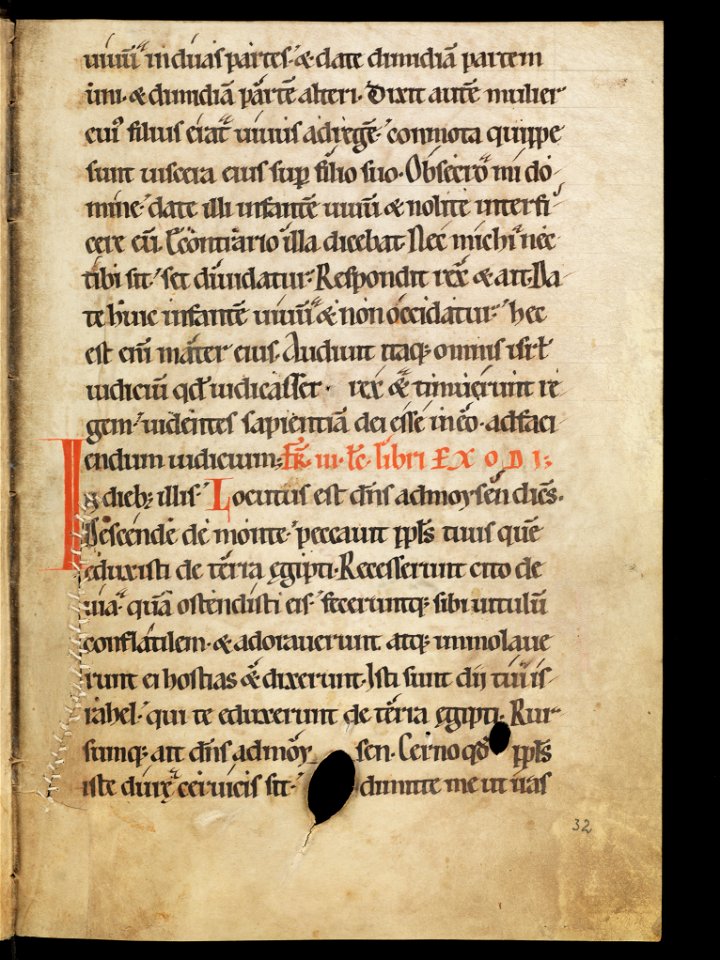 uiuū induas partes· & date dimidiā partem
uni· & dimidiā partē alteri· Dixit autē mulier
cui᷒ filius erat uiuus adregē· conmota quippe
sunt uiscera eius sup filio suo· Obsecro mi do
mine· date illi infantē uiuū & nolite interfi
cere eū· Econtrario illa dicebat· Nec michi nec
tibi sit· set diuidatur· Respondit rex & ait· Da
te huic infantē uiuū & non occidatur· hec
est enī mater eius· Audiuit itaq; omnis isrł
iudiciū qđ iudicasset· rex & timuerunt re
gem· uidentes sapientiā dei esse in eo· adfaci
endum iudicium; FR̄· iii· łc· libri EXODI;
In dieb; illis· Locutus est dn̄s admoysen dicēs·
Descende de monte· peccauit ppłs tuus quē
eduxisti de terra ęgipti· Recesserunt cito de
uia· quā ostendisti eis· feceruntq; sibi uitulū
conflatilem· & adorauerunt atq; immolaue
runt ei hostias & dixerunt· Isti sunt dii tui is
rahel· qui te eduxerunt de terra ęgipti· Rur
sumq; ait dn̄s admoy sen· Cerno qđ ppłs
iste durę ceruicis sit· dimitte me ut iras
32